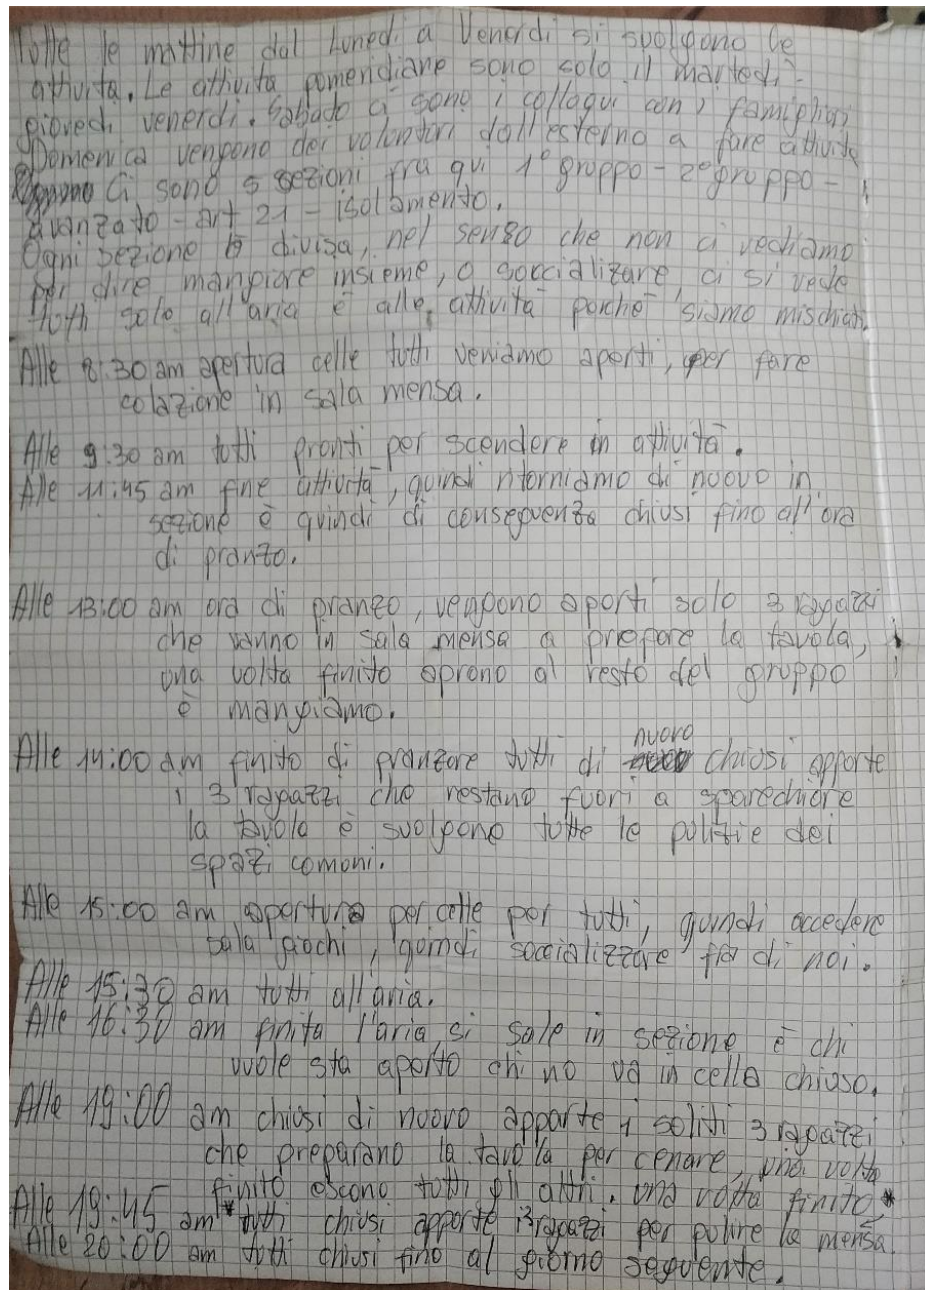 Tutte le mattine dal Lunedi a Venerdi si svolgono le
attivita. Le attivita pomeridiane sono solo il martedi-
giovedi venerdi. Sabado ci sono i colloqui con i famigliari
Domenica vengono dei volontari dall'esterno a fare attivita
Ci sono 5 sezioni fra qui 1° gruppo - 2° gruppo -
avanzato - art 21 - isolamento.
Ogni sezione è divisa, nel senso che non ci vediamo
per dire mangiare insieme, o soccializare, ci si vede
tutti solo all'aria è alle attività perchè siamo mischiati.
Alle 8:30 am apertura celle tutti veniamo aperti, per fare
colazione in sala mensa.
Alle 9:30 am tutti pronti per scendere in attività.
Alle 11:45 am fine attività, quindi ritorniamo di nuovo in
sezione è quindi di conseguenza chiusi fino all'ora
di pranzo.
Alle 13:00 am ora di pranzo, vengono aperti solo 3 ragazzi
che vanno in sala mensa a prepare la tavola,
una volta finito aprono al resto del gruppo
è mangiamo.
Alle 14:00 am finito di pranzare tutti di nuovo chiusi apporte
i 3 ragazzi che restano fuori a sparechiare
la tavola è svolgono tutte le pulizie dei
spazi comuni.
Alle 15:00 am apertura per celle per tutti, quindi accedere
sala giochi, quindi soccializzare fra di noi.
Alle 15:30 am tutti all'aria.
Alle 16:30 am finita l'aria, si sale in sezione è chi
vuole sta aperto chi no va in cella chiuso.
Alle 19:00 am chiusi di nuovo apparte i soliti 3 ragazzi
che preparano la tavola per cenare, una volta
finito escono tutti gli altri. una volta finito *
Alle 19:45 am * tutti chiusi apporte i 3 ragazzi per pulire la mensa.
Alle 20:00 am tutti chiusi fino al giorno seguente.